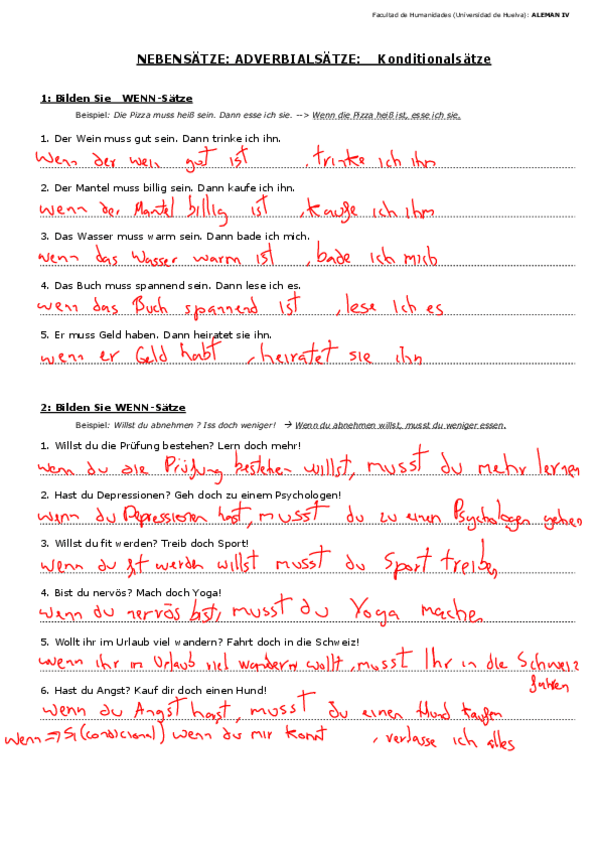 Facultad de Humanidades (Universidad de Huelva): ALEMAN IV
NEBENSÄTZE: ADVERBIALSÄTZE: Konditionalsätze
1: Bilden Sie WENN-Sätze
Beispiel: Die Pizza muss heiß sein. Dann esse ich sie. --> Wenn die Pizza heiß ist, esse ich sie.
1. Der Wein muss gut sein. Dann trinke ich ihn.
Wenn der wein gut ist , trinke ich ihn
2. Der Mantel muss billig sein. Dann kaufe ich ihn.
wenn der Mantel billig ist , kaufe ich ihm
3. Das Wasser muss warm sein. Dann bade ich mich.
wenn das Wasser warm ist , bade ich mich
4. Das Buch muss spannend sein. Dann lese ich es.
wenn das Buch spannend ist , lese ich es
5. Er muss Geld haben. Dann heiratet sie ihn.
wenn er Geld habt , heiratet sie ihn
2: Bilden Sie WENN-Sätze
Beispiel: Willst du abnehmen ? Iss doch weniger! → Wenn du abnehmen willst, musst du weniger essen.
1. Willst du die Prüfung bestehen? Lern doch mehr!
wenn du die Prüfung bestehen willst, musst du mehr lernen
2. Hast du Depressionen? Geh doch zu einem Psychologen!
wenn du Depressionen hast, musst du zu einen Psychologen gehen
3. Willst du fit werden? Treib doch Sport!
wenn du fit werden willst musst du Sport treiben
4. Bist du nervös? Mach doch Yoga!
wenn du nervös bist, musst du Yoga machen
5. Wollt ihr im Urlaub viel wandern? Fahrt doch in die Schweiz!
wenn ihr im Urlaub viel wandern wollt, musst Ihr in die Schweiz
fahren
6. Hast du Angst? Kauf dir doch einen Hund!
wenn du Angst hast, musst du einen Hund kaufen
wenn => Si (condicional) wenn du mir konnt , verlasse ich alles